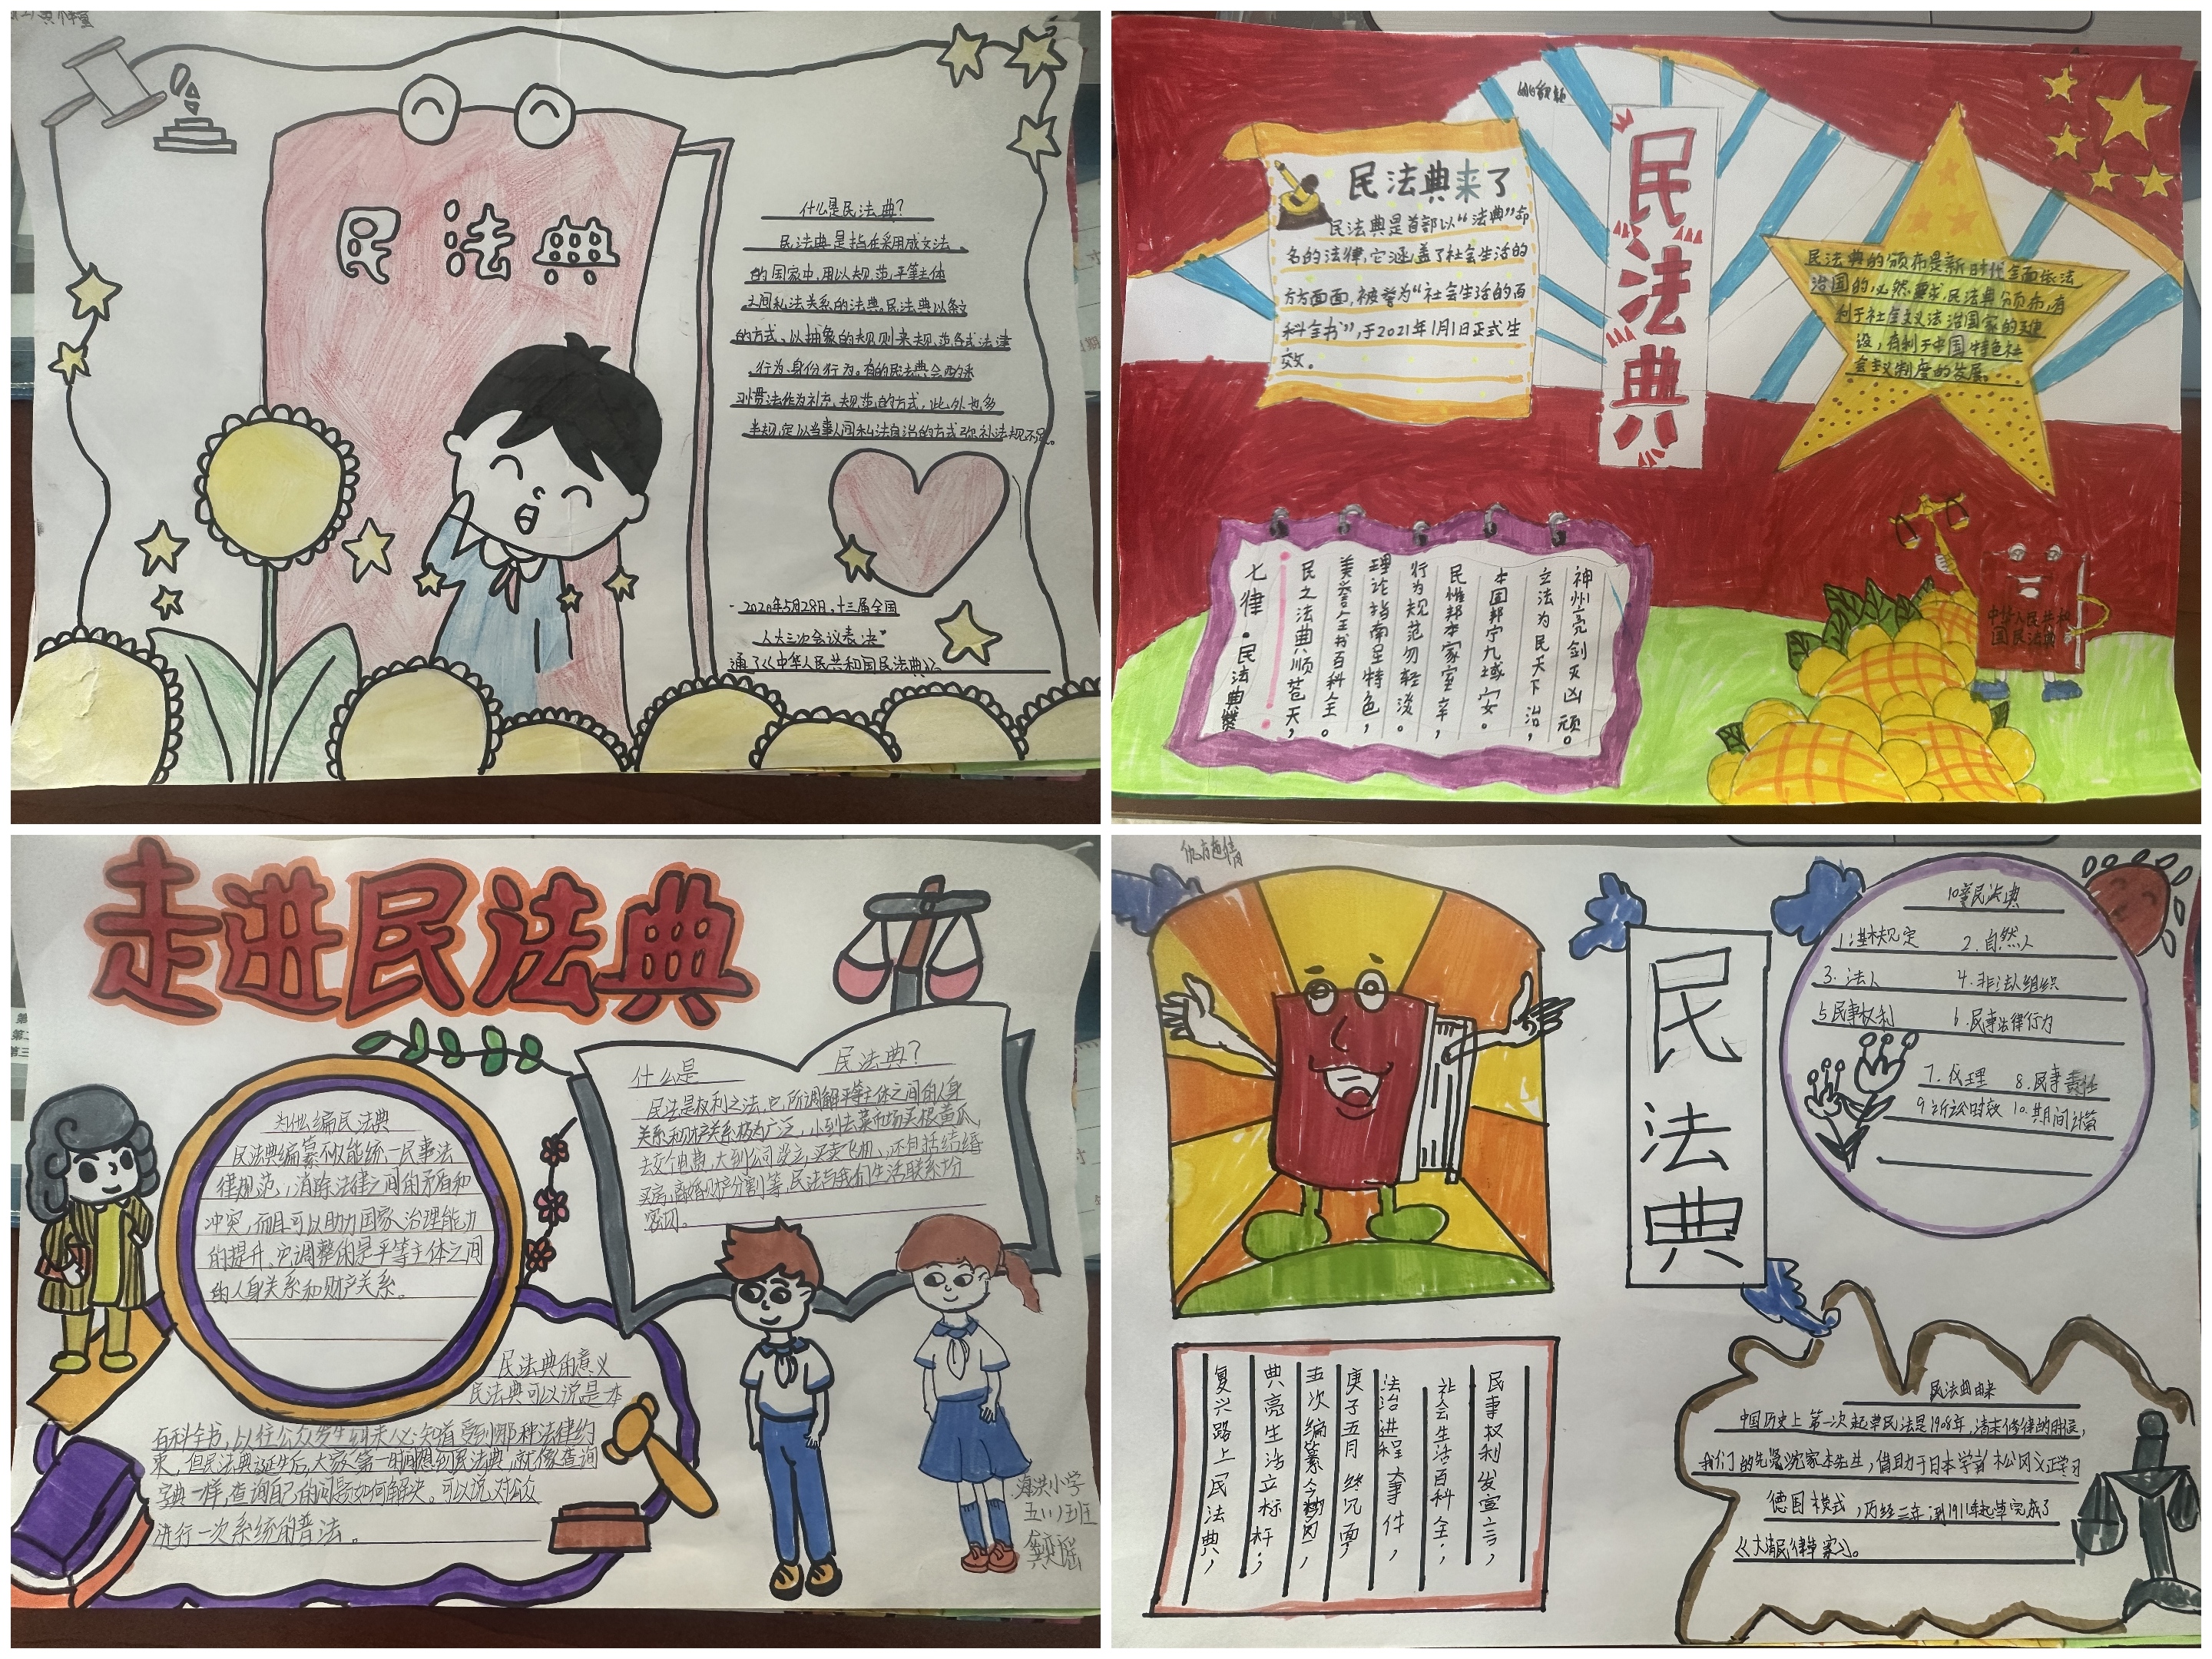 民法典
什么是民法典?
民法典是指在采用成文法
的国家中,用以规范平等主体
之间私法关系的法典,民法典以条文
的方式、以抽象的规则来规范各式法律
行为、身份行为。有的民法典会酌采
习惯法作为补充规范的方式,此外也多
半规定以当事人间私法自治的方式弥补法规不足。
2020年5月28日,十三届全国
人大三次会议表决"
通了《中华人民共和国民法典》。
民法典
民法典来了
民法典是首部以“法典”命
名的法律,它涵盖了社会生活的
方方面面,被誉为“社会生活的百
科全书”,于2021年1月1日正式生
效。
民法典的颁布是新时代全面依法
治国的必然要求,民法典颁布,有
利于社会主义法治国家的建
设,有利于中国特色社
会主义制度的发展。...
中华人民共和
国民法典
神州亮剑灭凶顽。
立法为民天下治,
本固邦宁九域安。
民惟邦本家室幸,
行为规范勿轻淡。
理论指南星特色,
美誉全书百科全。
民之法典顺苍天,
七律·民法典赞
走进民法典
什么是 民法典?
民法是权利之法,它所调解平等主体之间的人身
关系和财产关系极为广泛,小到去菜市场买根黄瓜,
去交个电费,大到公司设立,买卖飞机、还包括结婚
买房,离婚财产分割等,民法与我们生活联系十分
密切。
为什么编民法典
民法典编纂不仅能统一民事法
律规范,消除法律之间的矛盾和
冲突,而且可以助力国家治理能力
的提升。它调整的是平等主体之间
的人身关系和财产关系。
民法典的意义
民法典可以说是一本
百科全书,以往公众发生纠未必知道受到哪种法律约
束,但民法典诞生后,大家第一时间想到民法典,就像查询
字典一样,查询自己的问题如何解决。可以说对公众
进行一次系统的普法。
海洪小学
五(1)班
民法典
10章民法典
1:基本规定 2.自然人
3.法人 4.非法人组织
5.民事权利 6.民事法律行为
7.代理 8.民事责任
9.诉讼时效 10.期间计算
民事权利发宣言,
社会生活百科全;
法治进程大事件,
庚子五月终见面,
典亮生活立标杆;
复兴路上民法典,
民法典由来
中国历史上第一次起草民法是1908年,清末修律的时候,
我们的先贤沈家本先生,借助于日本学者松冈义正学习
德国模式,历经三年到1911年起草完成了
《大清民律草案》。